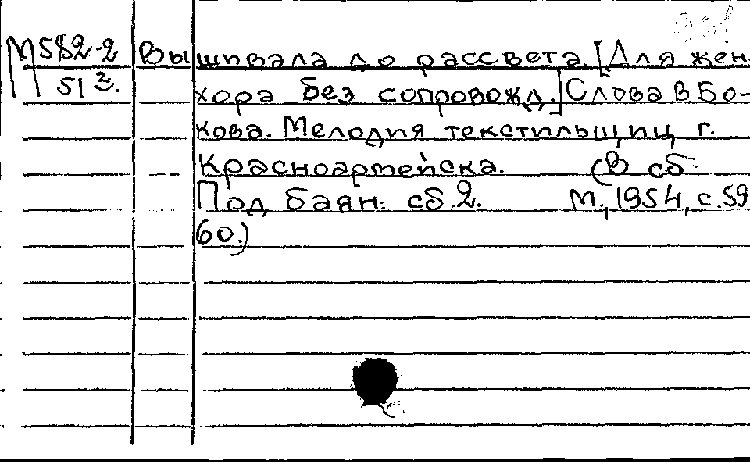 М582-2 Вышивала до рассвета. [Для жен.
513. хора без сопровожд.] Слова В Бо-
кова. Мелодия текстильщиц г.
Красноармейска. (В сб.
Под баян. сб 2. М., 1954, с. 59
60.)